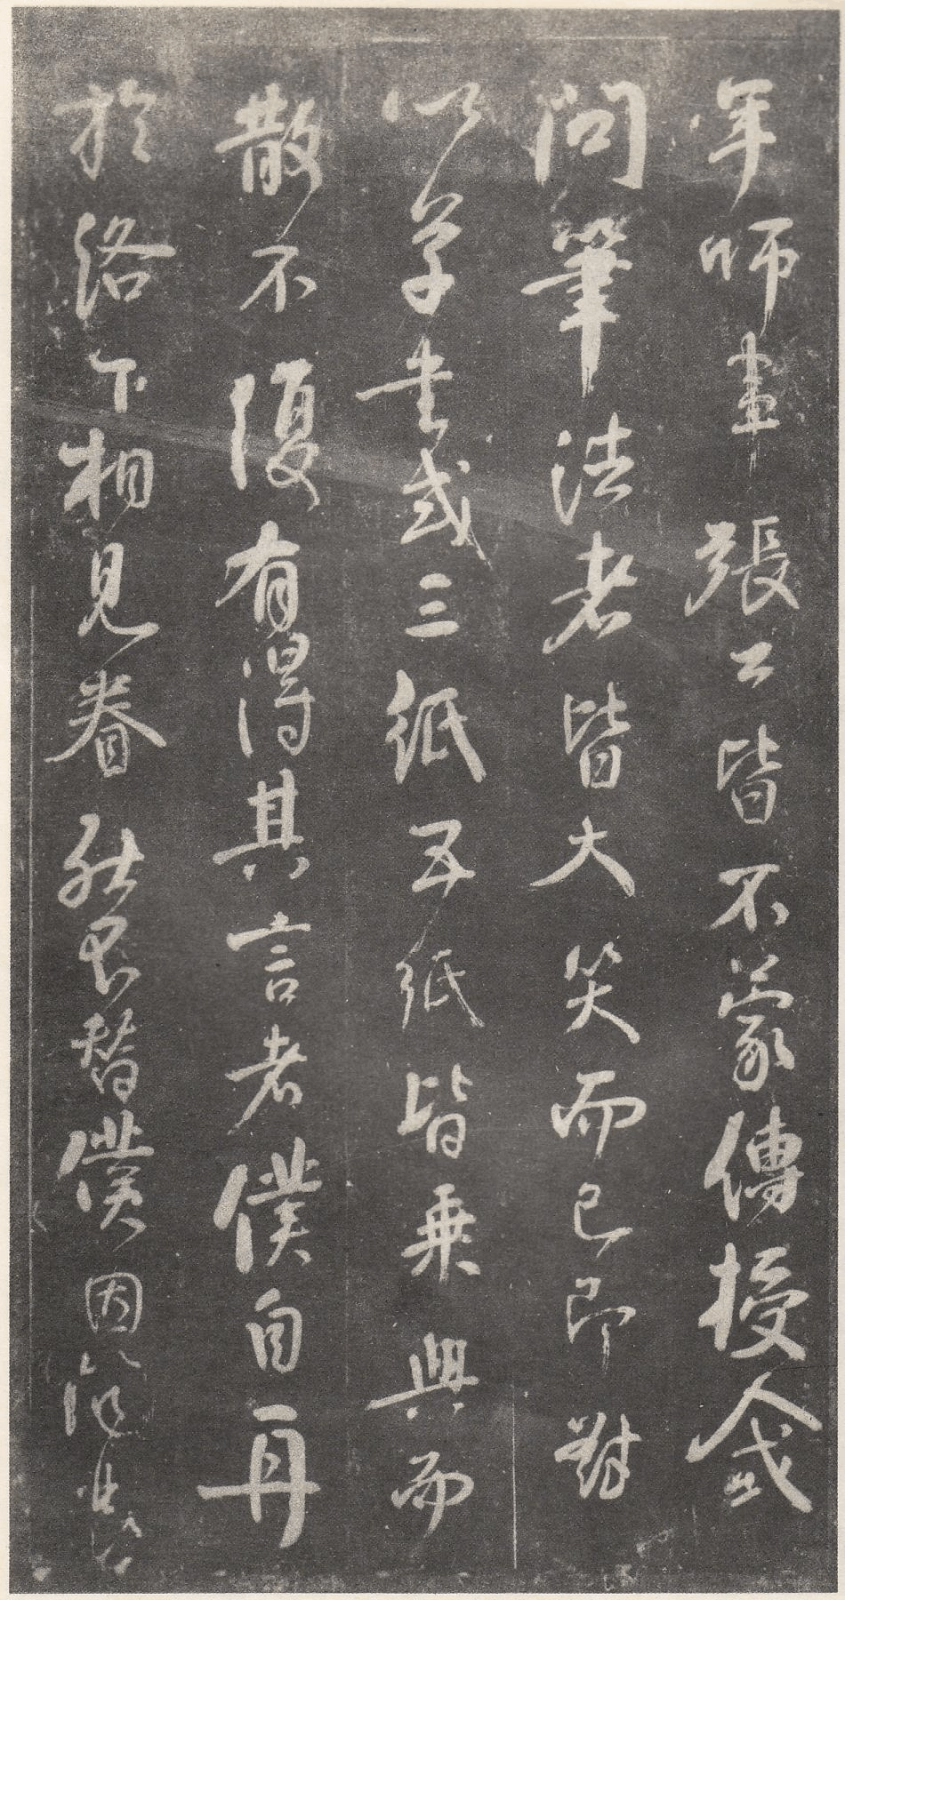 年師張公皆不蒙傳授人或
問筆法者皆大笑而已即對
以草書或三紙五紙皆乘興而
散不復有得其言者僕自再
於洛下相見眷然不替僕因